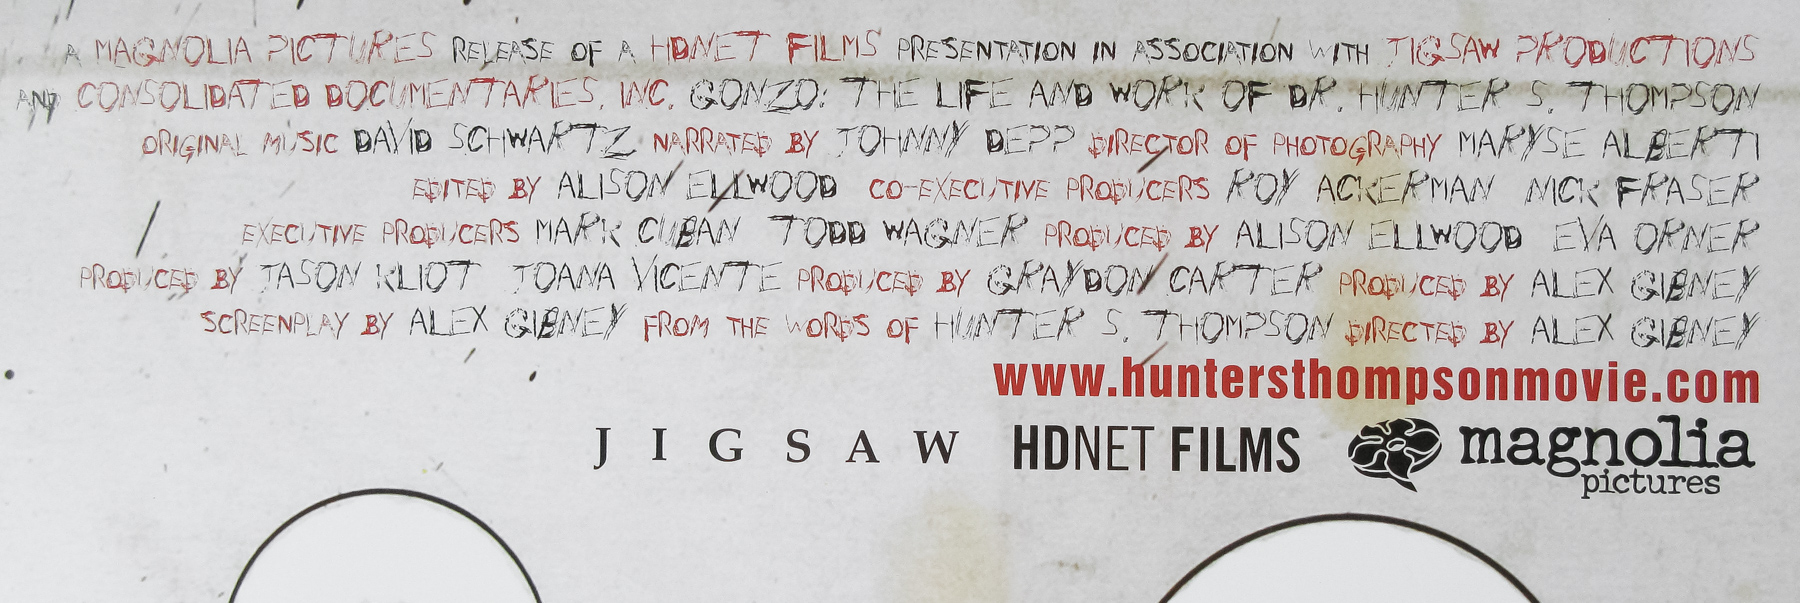 A MAGNOLIA PICTURES RELEASE OF A HDNET FILMS PRESENTATION IN ASSOCIATION WITH JIGSAW PRODUCTIONS
AND CONSOLIDATED DOCUMENTARIES, INC. GONZO: THE LIFE AND WORK OF DR. HUNTER S. THOMPSON
ORIGINAL MUSIC DAVID SCHWARTZ NARRATED BY JOHNNY DEPP DIRECTOR OF PHOTOGRAPHY MARYSE ALBERTI
EDITED BY ALISON ELLWOOD CO-EXECUTIVE PRODUCERS ROY ACKERMAN NICK FRASER
EXECUTIVE PRODUCERS MARK CUBAN TODD WAGNER PRODUCED BY ALISON ELLWOOD EVA ORNER
PRODUCED BY JASON KLIOT JOANA VICENTE PRODUCED BY GRAYDON CARTER PRODUCED BY ALEX GIBNEY
SCREENPLAY BY ALEX GIBNEY FROM THE WORDS OF HUNTER S. THOMPSON DIRECTED BY ALEX GIBNEY
www.huntersthompsonmovie.com
JIGSAW HDNET FILMS magnolia
pictures